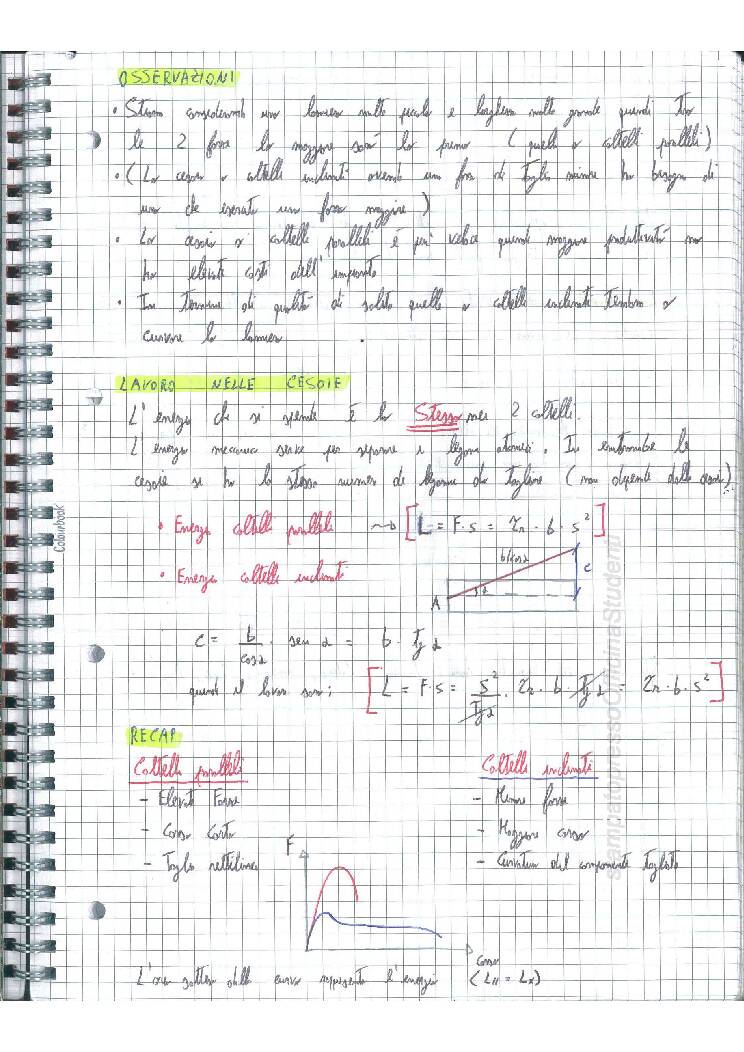 OSSERVAZIONI
• Stiamo considerando una lamiera molto piccola e larghezza molto grande quindi tra
le 2 forze la maggiore sarà la prima (quella a coltelli paralleli)
• (La cesoia a coltelli inclinati avendo un forza di taglio minore ha bisogno di
una che eserciti una forza maggiore)
• La cesoia a coltelli paralleli è più veloce quindi maggiore produttività ma
ha elevati costi dell'impianto
• In termine di qualità di solito quelle a coltelli inclinati tendono a
curvare la lamiera
LAVORO NELLE CESOIE
L'energia che si spende è la Stessa nei 2 coltelli.
L'energia meccanica serve per separare i legami atomici. In entrambe le
cesoie si ha lo stesso numero di legami da tagliare (non dipende dalla cesoia)
• Energia coltelli paralleli ⇝ [L = F·s = τr · b · s²]
• Energia coltelli inclinati
b/cosα
c
α
A
c = b/cosα · sen α = b · tg α
quindi il lavoro sarà: [L = F·s = s²/tg α · τr · b · tg α = τr · b · s²]
RECAP
Coltelli paralleli
- Elevate Forze
- Corsa Corta
- Taglio rettilineo
Coltelli inclinati
- Minore forza
- Maggiore corsa
- Curvatura del componente tagliato
F
Corsa
L'area sottesa dalla curva rappresenta l'energia (L∥ = L∠)
Colourbook
StampatopressoCopiuinaStudenti